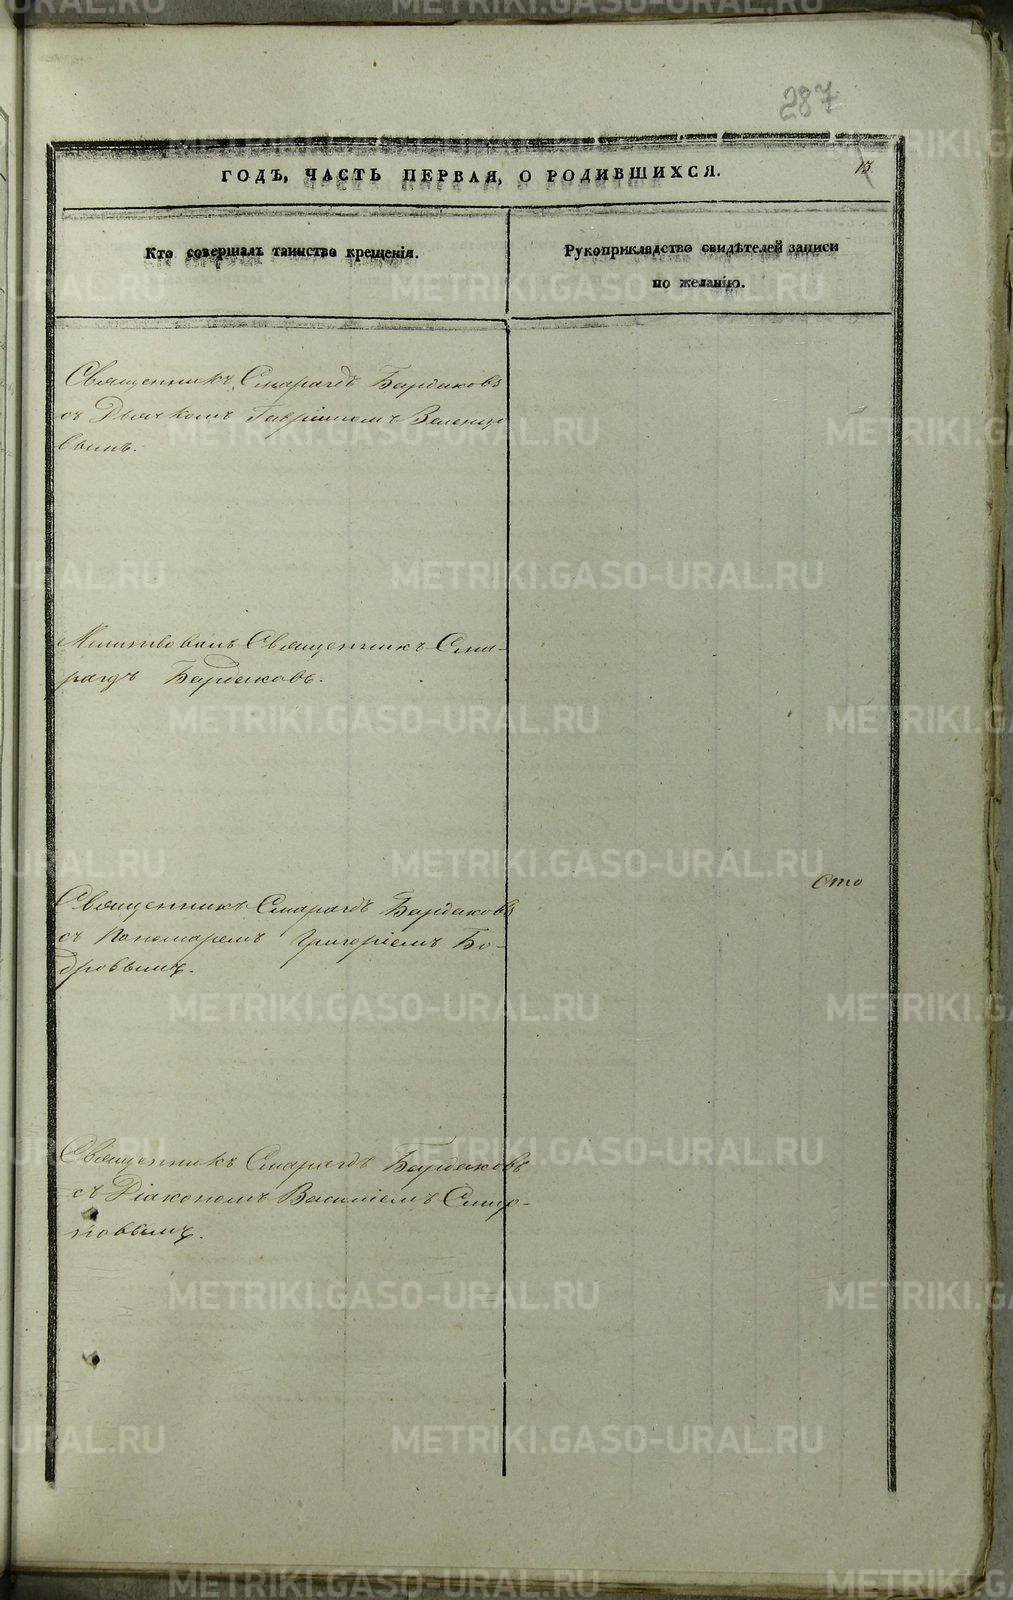 287
ГОДЪ, ЧАСТЬ ПЕРВАЯ, О РОДИВШИХСЯ.
13.
Кто совершалъ таинство крещенія.
Рукоприкладство свидѣтелей записи
по желанію.
Священникъ Смарагдъ Бардаковъ
съ Дьячкомъ Гавріиломъ
вымъ.
Молитвовалъ Священникъ Сма-
рагдъ Бардаковъ.
Священникъ Смарагдъ Бардаковъ
съ Пономаремъ Григоріемъ Бо-
бровымъ.
Сто
Священникъ Смарагдъ Бардаковъ
съ Діакономъ Василіемъ Смир-
новымъ.
METRIKI.GASO-URAL.RU